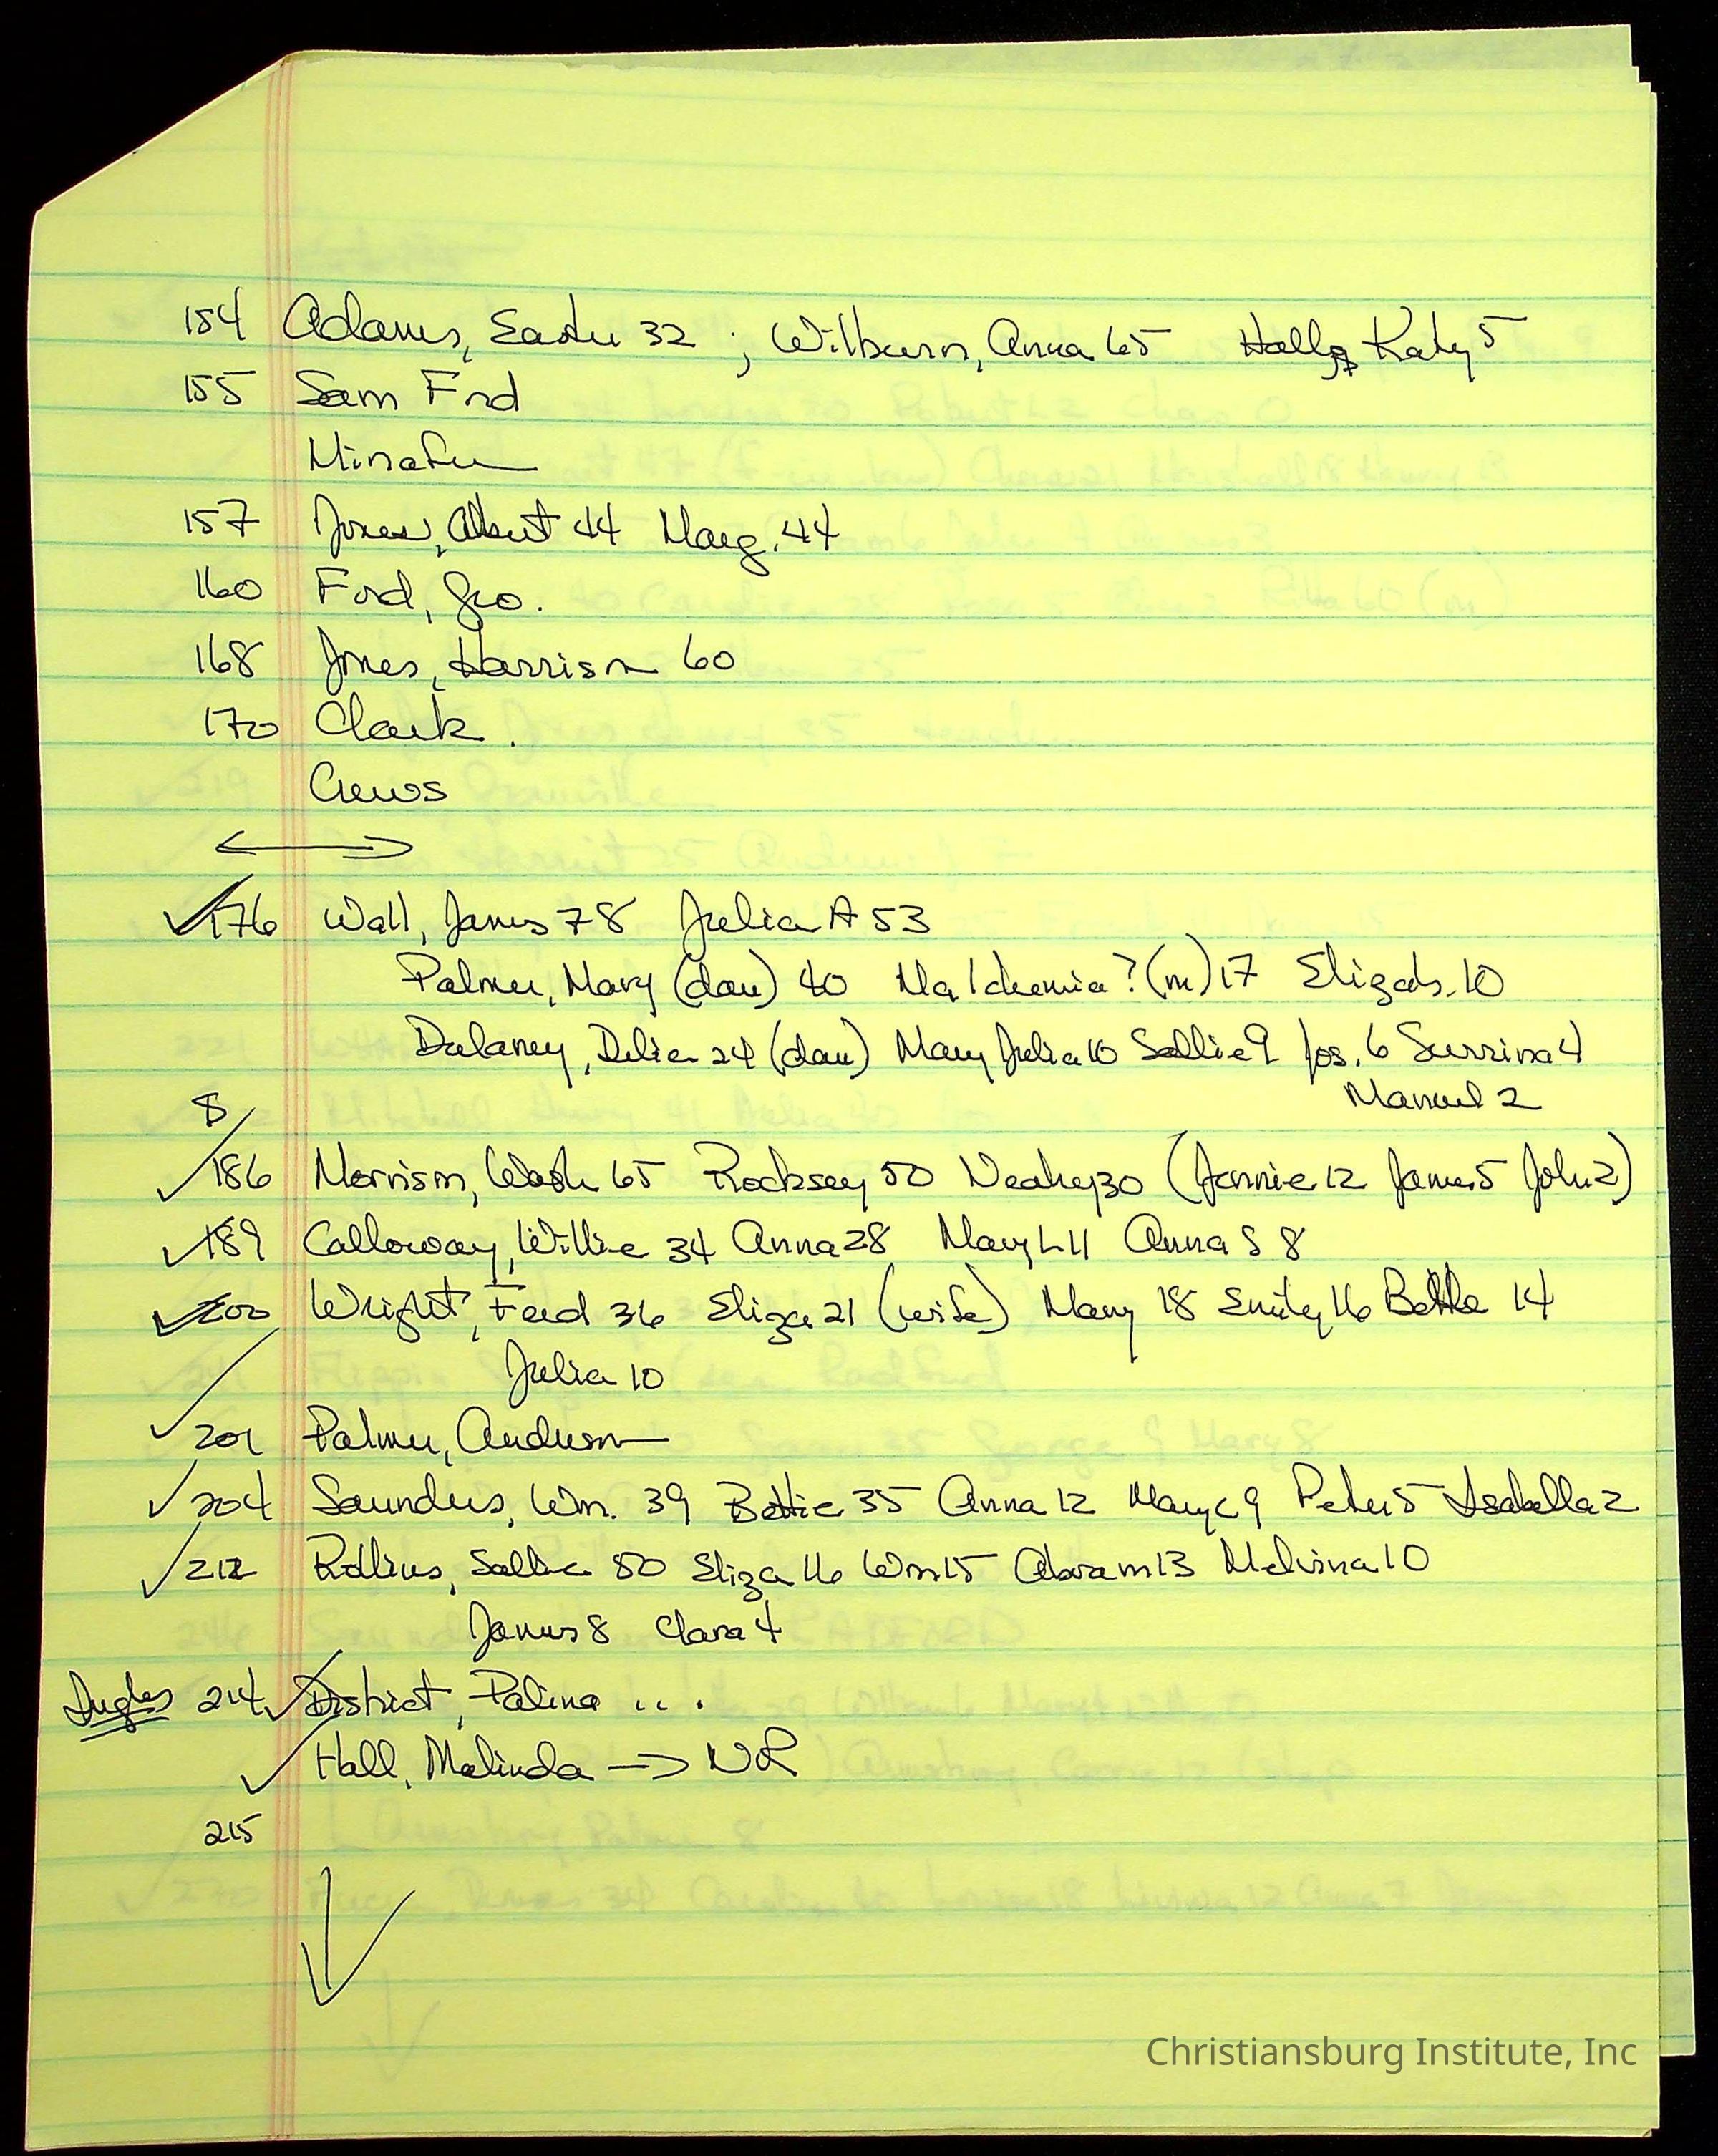 154 Adams, Easter 32 ; Wilburn, Anna 65 Hall, Katy 5
155 Sam Ford
Minafee
157 Jones, Albert 44 Marg. 44
160 Ford, Geo.
168 Jones, Harrison 60
170 Clark
Crews
✓176 Wall, James 78 Julia A 53
Palmer, Mary (dau) 40 ? (m) 17 Elizab. 10
Dulaney, Delia 24 (dau) Mary Julia 10 Sallie 9 Jos. 6 Surrina 4
Manuel 2
8
✓186 Morrison, Wash 65 Rocksey 50 30 (Fannie 12 James 5 John 2)
✓189 Calloway, Willie 34 Anna 28 Mary L 11 Anna S 8
✓200 Wright, Ferd 36 Eliza 21 (wife) Mary 18 Emily 16 Bettie 14
Julia 10
✓201 Palmer, Anderson
✓204 Saunders, Wm. 39 Bettie 35 Anna 12 Mary C 9 Peter 5 Isabella 2
✓212 Rollins, Sallie 50 Eliza 16 Wm 15 Abram 13 Melvina 10
James 8 Clara 4
Ingles 214 ✓ District, Palina . . .
✓ Hall, Malinda → NR
215
Christiansburg Institute, Inc